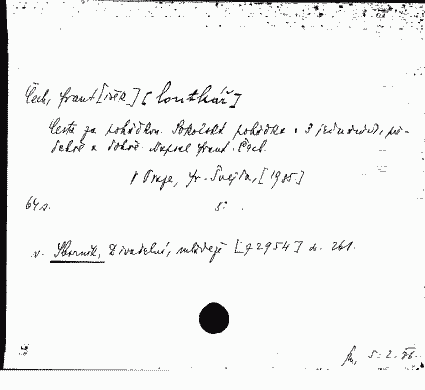 Čech, Frant[išek] [loutkář]
Cesta za pohádkou. Sokolská pohádka o 3 jednáních, po-
Napsal Frant. Čech.
V Praze, Fr. Švejda, [1905]
64 s. 8°.
v. Sborník, Divadelní, mládeže [72954] d. 261.
5. 2. 86.